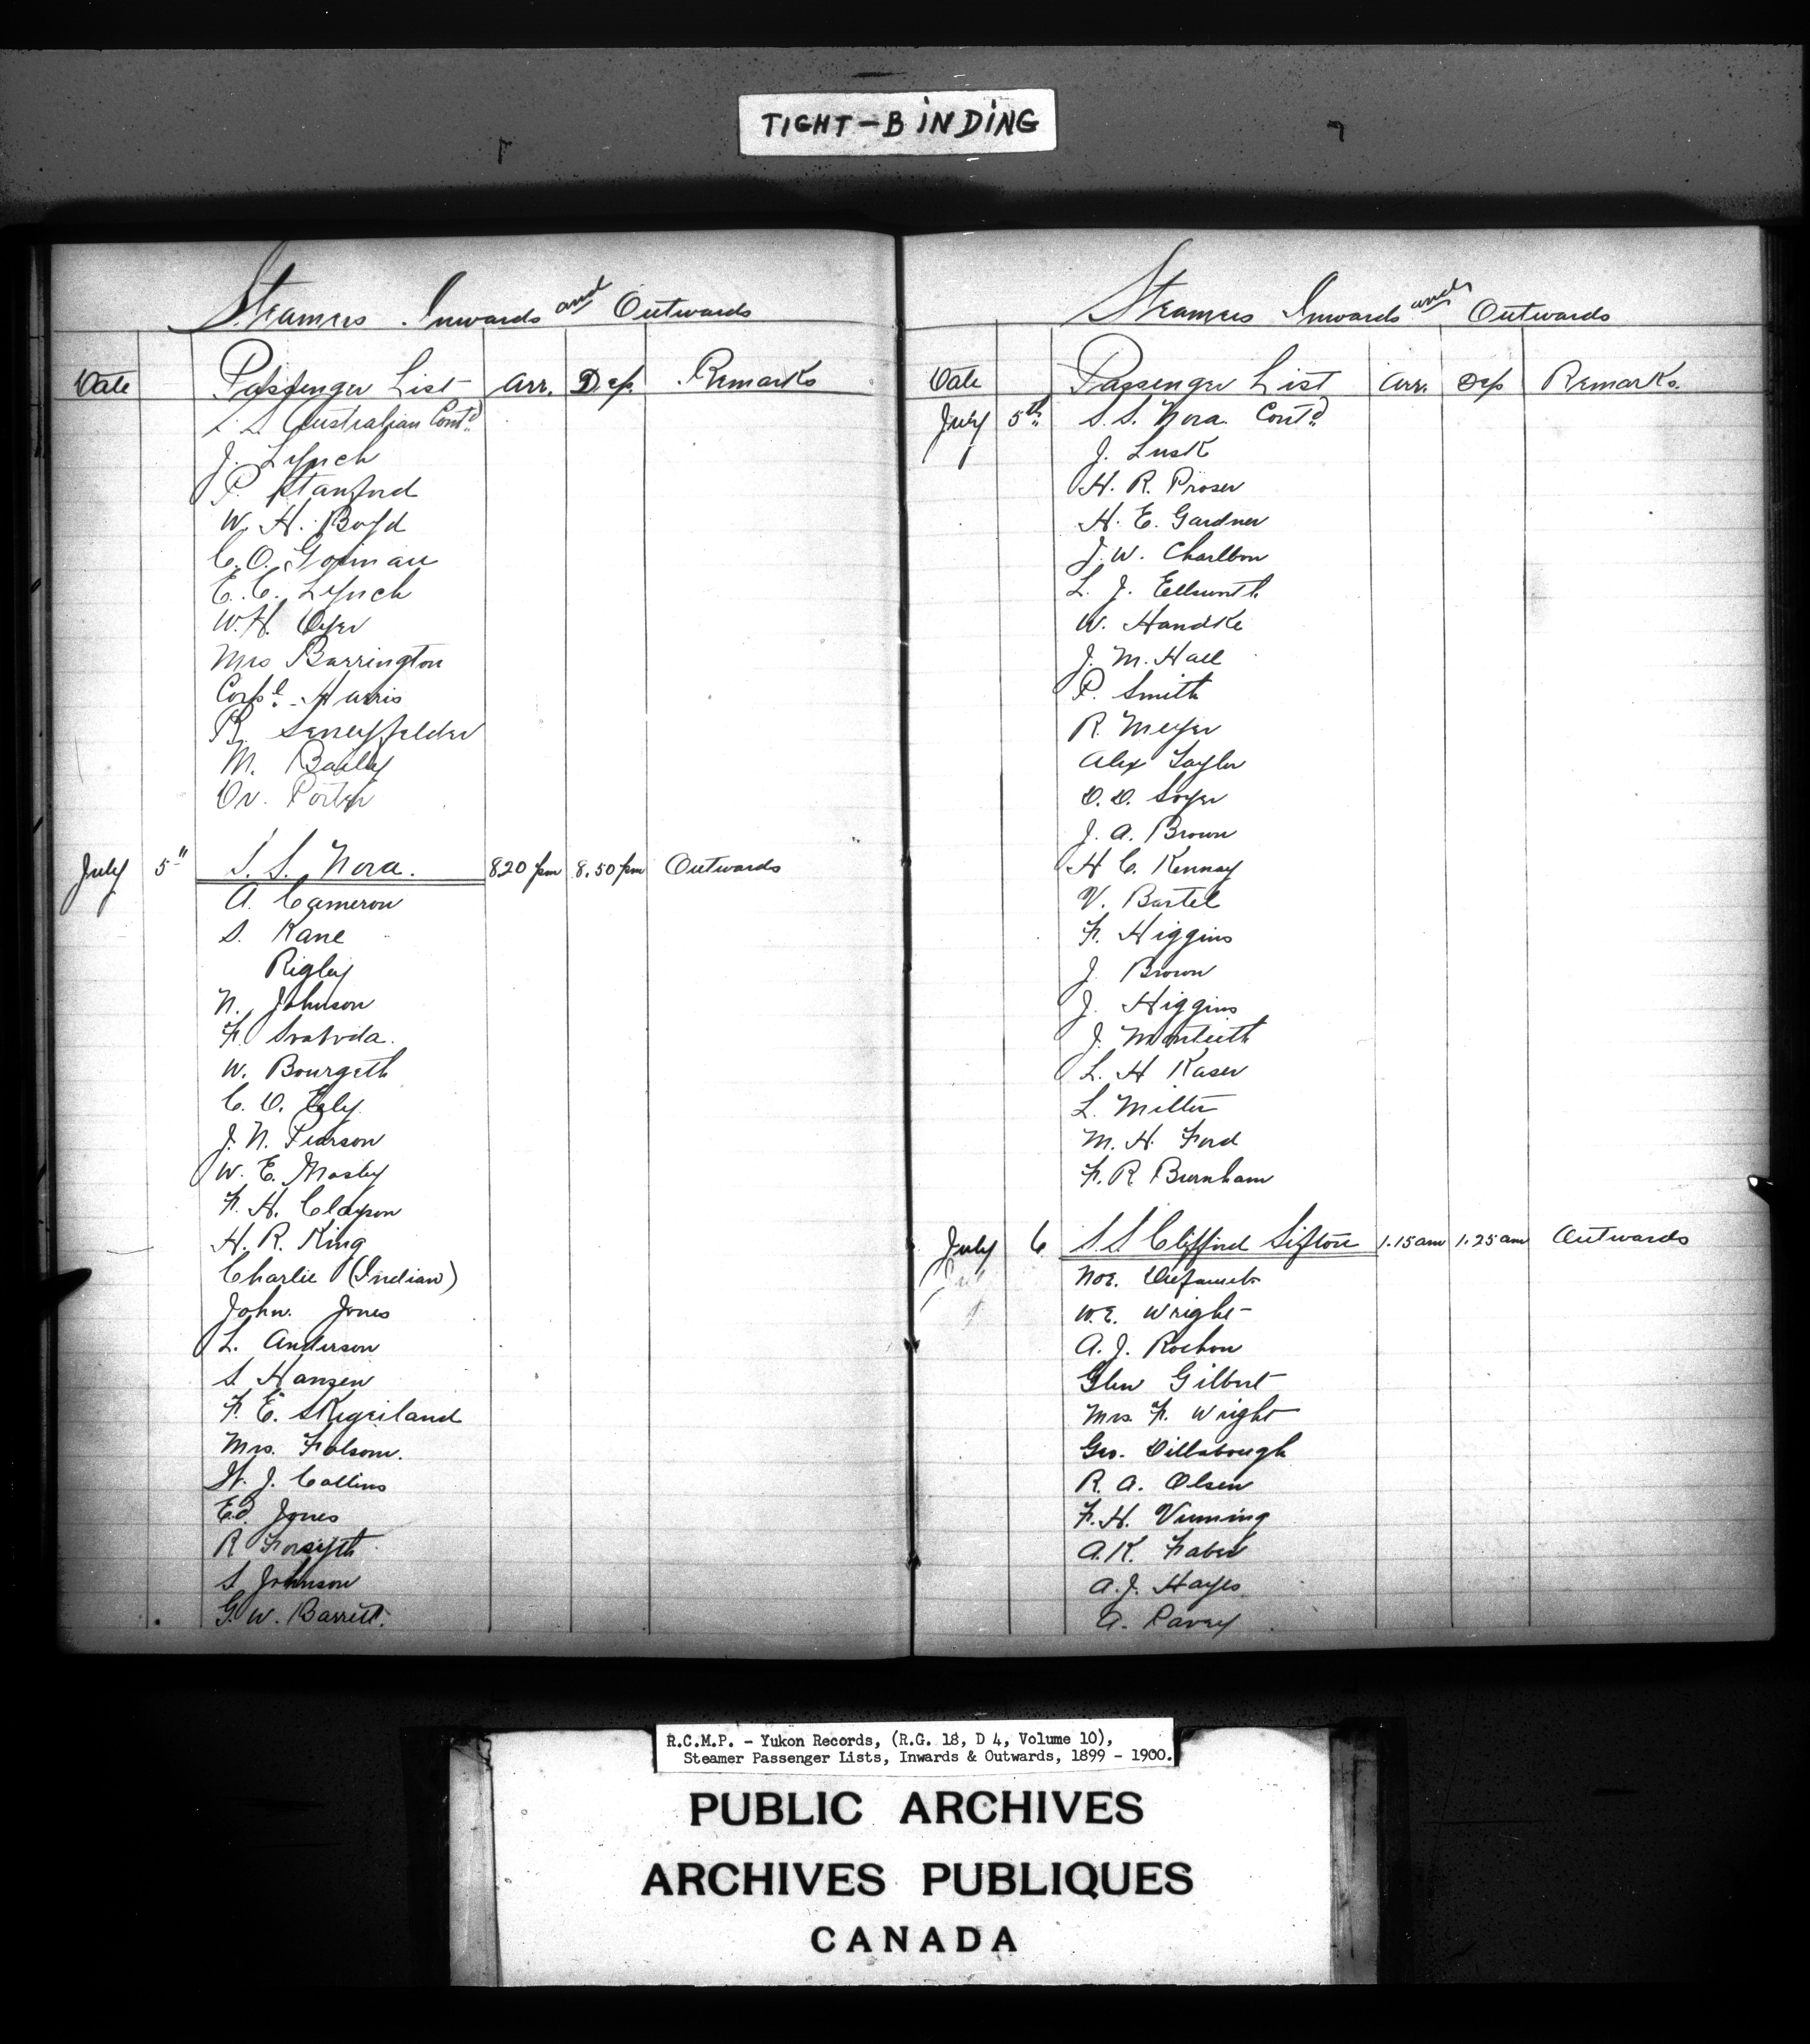 TIGHT-BINDING
Steamers Inwards and Outwards
Date Passenger List Arr. Dep. Remarks
S.S. Australian Contd.
J. Lynch
P. Stanford
W. H. Boyd
C. O. Gorman
E. C. Lynch
W. H. Dyer
Mrs Barrington
Corpl. Harris
R. Seneyfelder
M. Bailey
Dr. Porter
July 5" S. S. Nora. 8.20 pm 8.50 pm Outwards
A. Cameron
S. Kane
Rigley
N. Johnson
F. Svabvda.
W. Bourgeth
C. D. Ealy.
J. N. Pearson
W. E. Mosby
F. H. Clayson
H. R. King
Charlie (Indian)
John. Jones
L. Anderson
S. Hansen
F. E. Skegriland
Mrs. Folsom.
W. J. Collins
Ed. Jones
R Forsyth
S. Johnson
G. W. Barrett.
Steamers Inwards and Outwards
Date Passenger List Arr. Dep Remarks.
July 5th S. S. Nora. Contd
J. Lusk
H. R. Proser
H. E. Gardner
J. W. Charlbon
L. J. Ellsworth
W. Handke
J. M. Hall
P. Smith
R. Meyer
Alex Taylor
D. D. Soyer
J. A. Brown
H C. Kennay
V. Bartel
F. Higgins
J. Brown
J. Higgins
J. Monteith
L. H Kaser
L. Miller
M. H. Ford
F. R Burnham
July 6 S. S Clifford Sifton 1.15 am 1.25 am Outwards
Noe.
W. E. Wright
A. J. Rochon
Glen Gilbert
Mrs. F. Wright
Geo. Dillabough
R. A. Olsen
F. H. Vinning
A. K. Faber
A. J. Hayes
A. Pavey
R.C.M.P. - Yukon Records, (R.G. 18, D 4, Volume 10),
Steamer Passenger Lists, Inwards & Outwards, 1899 - 1900.
PUBLIC ARCHIVES
ARCHIVES PUBLIQUES
CANADA